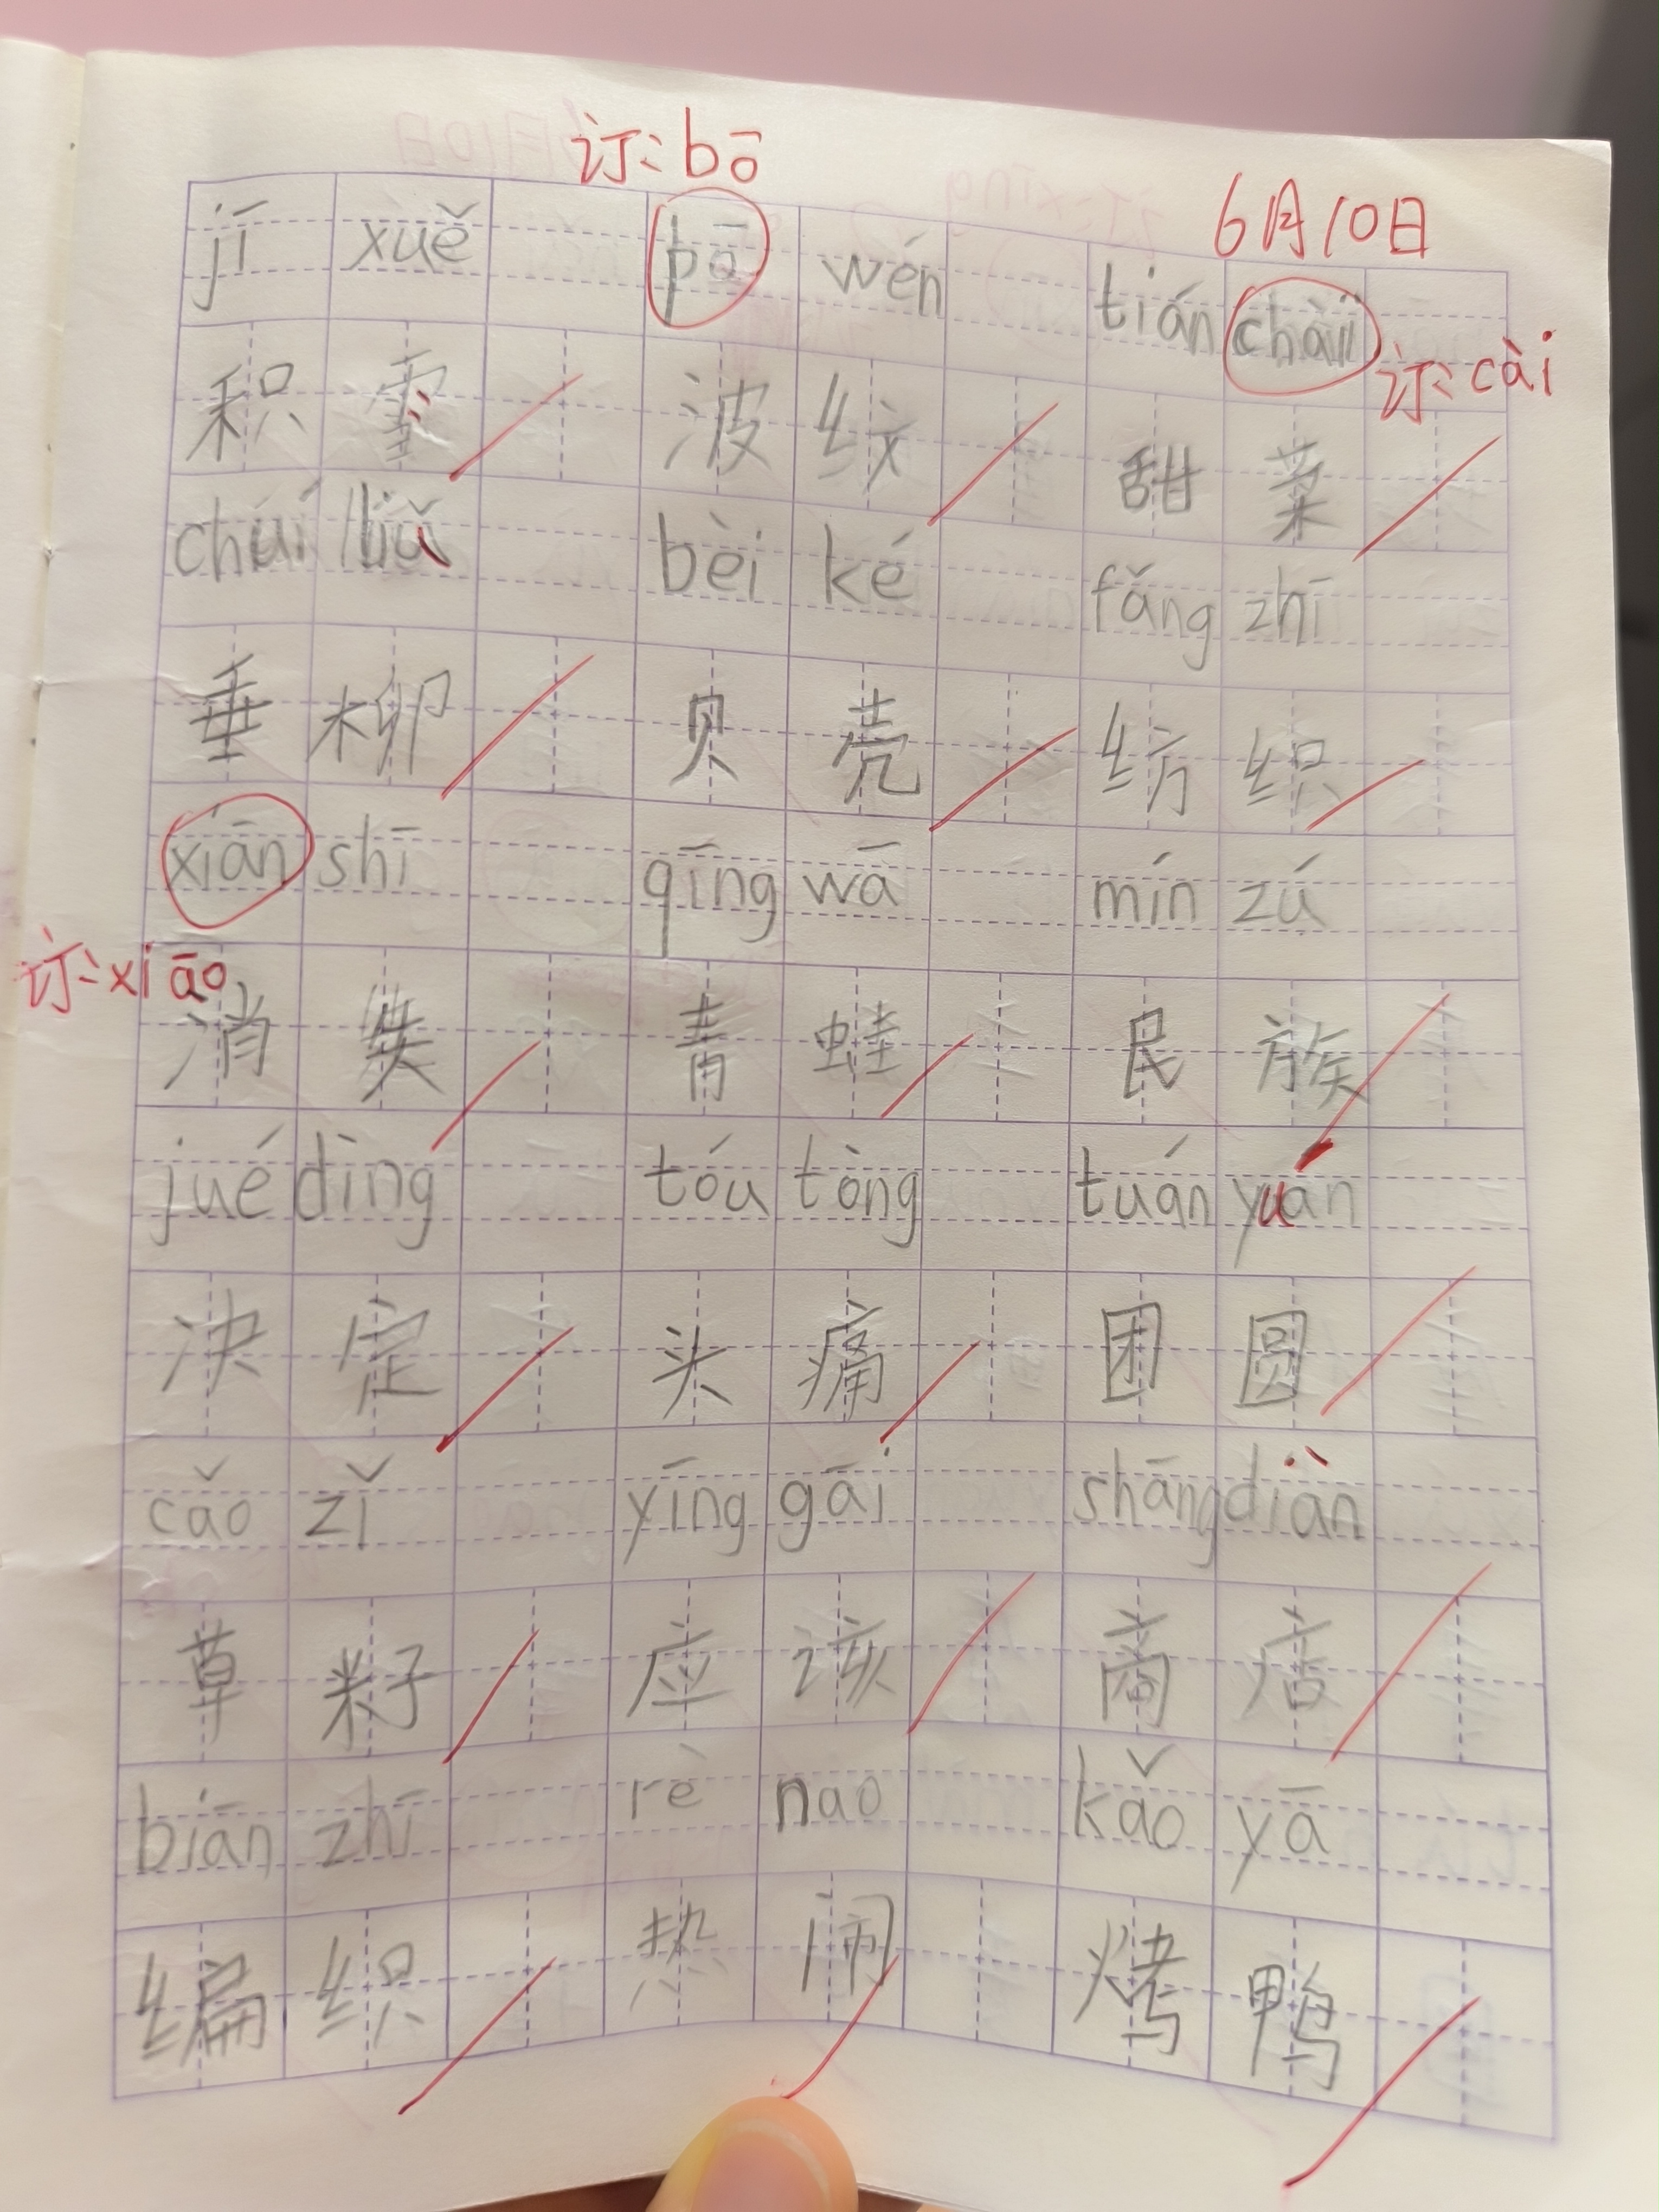 订:bō
6月10日
jī xuě pō wén tián chàì
订:cài
积雪 波纹 甜菜
chúi liǔ bèi ké fǎng zhī
垂柳 贝壳 纺织
xiān shī qīng wā mín zú
订:xiāo
消失 青蛙 民族
jué dìng tóu tòng tuán yuán
决定 头痛 团圆
cǎo zǐ yīng gāi shāng diàn
草籽 应该 商店
biān zhī rè nao kǎo yā
编织 热闹 烤鸭